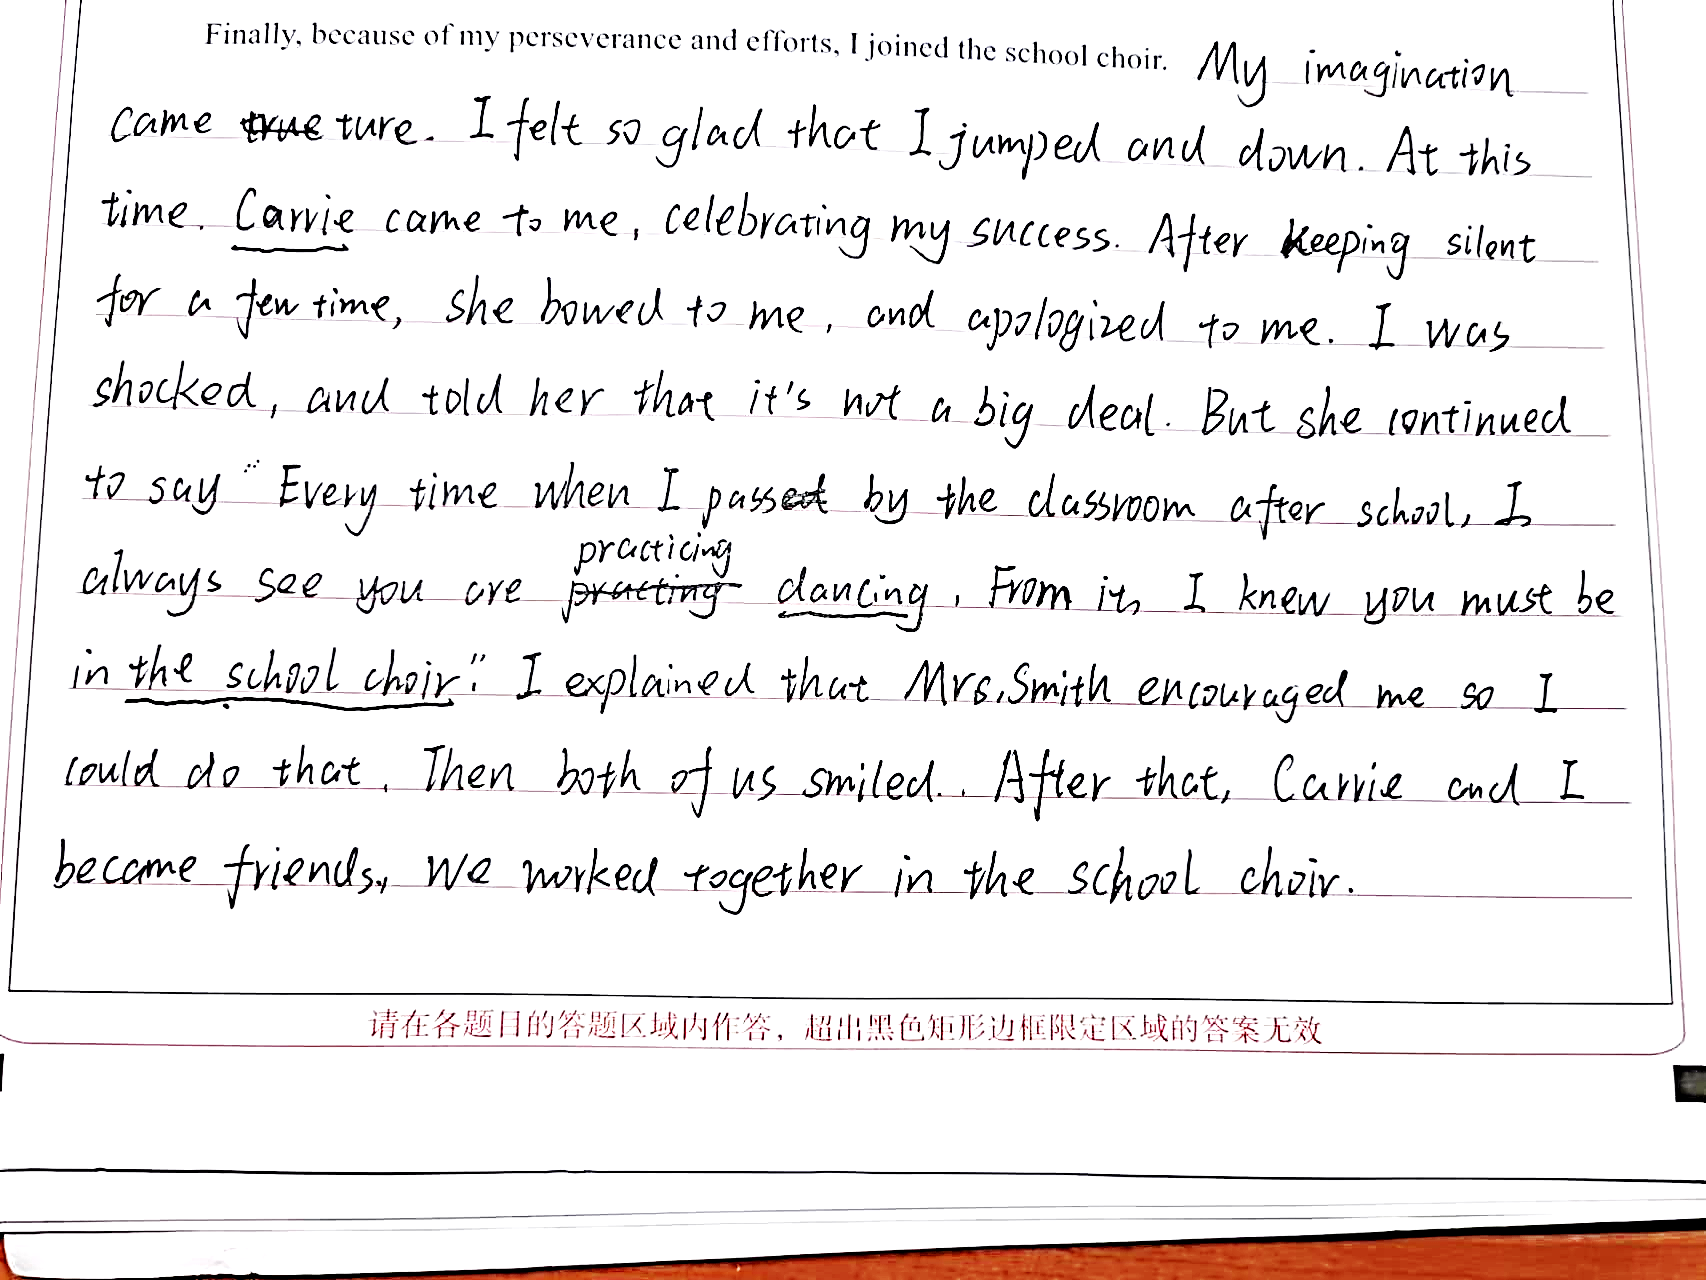 Finally, because of my perseverance and efforts, I joined the school choir. My imagination
came true ture. I felt so glad that I jumped and down. At this
time. Carrie came to me, celebrating my success. After keeping silent
for a few time, she bowed to me, and apologized to me. I was
shocked, and told her that it's not a big deal. But she continued
to say " Every time when I passed by the classroom after school, I
practicing
always see you are practing dancing. From it, I knew you must be
in the school choir." I explained that Mrs.Smith encouraged me so I
could do that. Then both of us smiled. After that, Carrie and I
became friends, We worked together in the school choir.
请在各题目的答题区域内作答，超出黑色矩形边框限定区域的答案无效